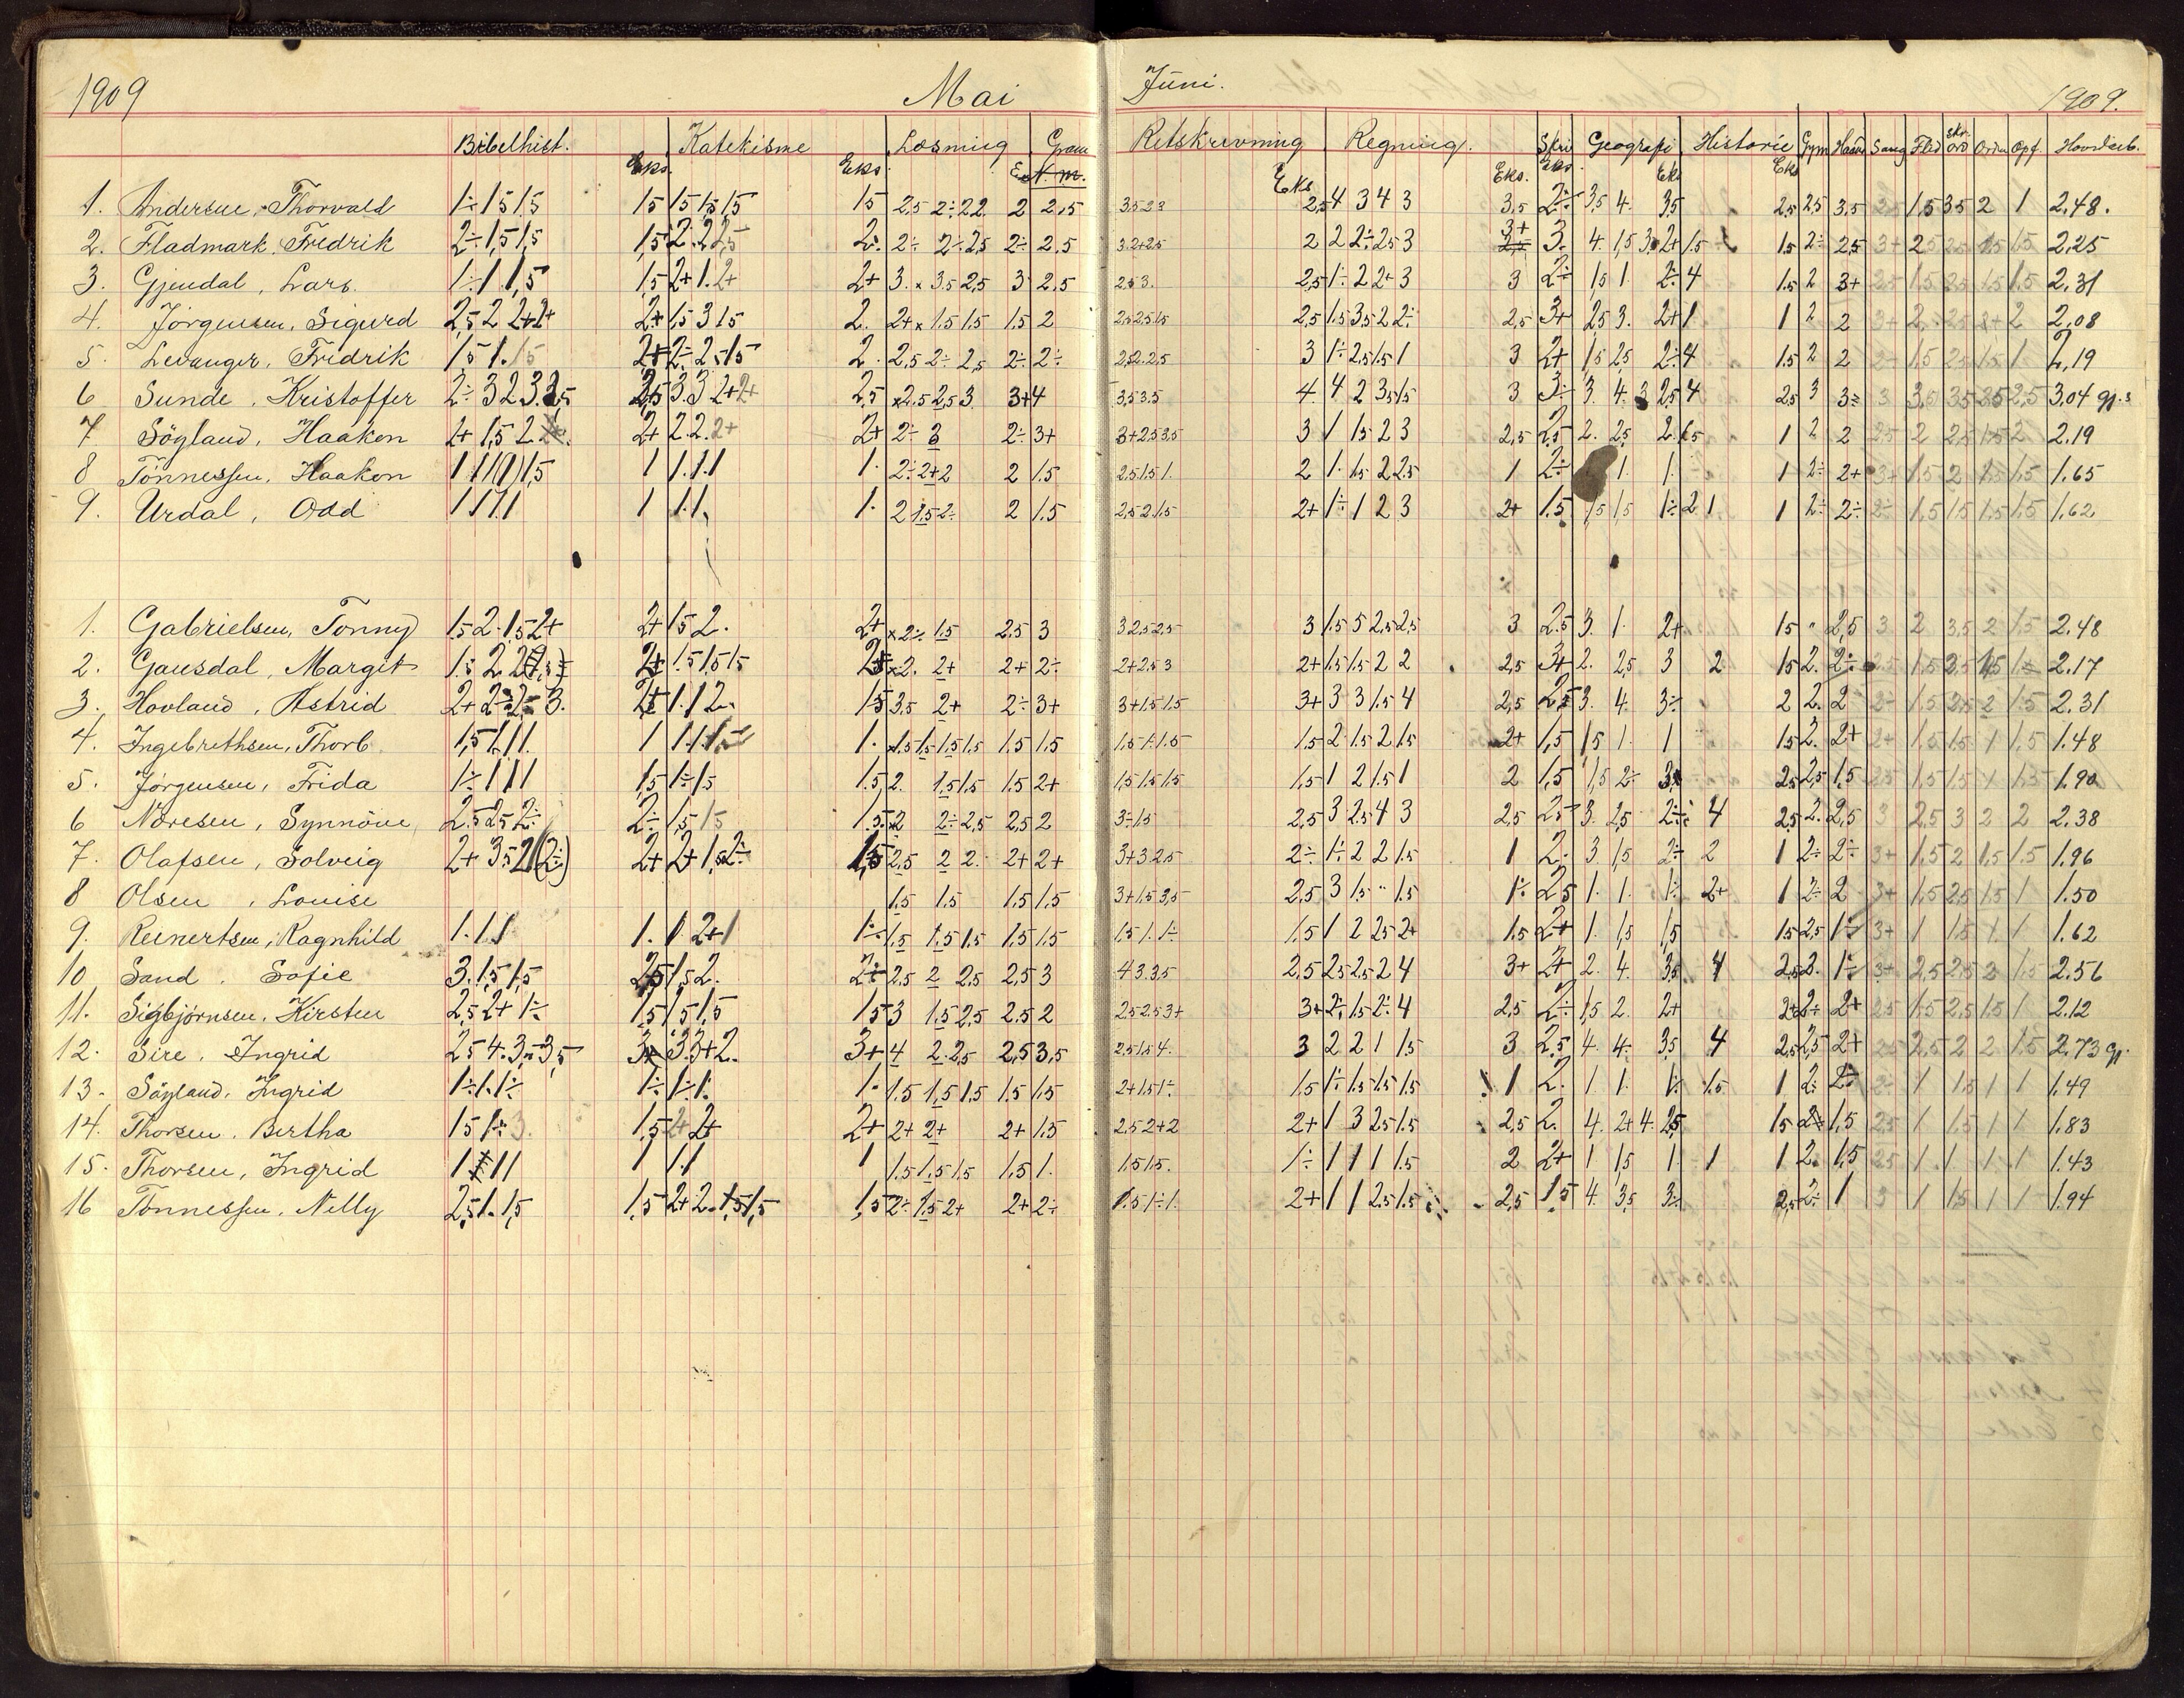 1909 Mai Juni. 1909.
Bibelhist. Katekisme Læsning Gram Retskrivning Regning. Skri Geografi Historie Gym Haand Sang Flid skr. ord Orden Opf. Hovedkar.
Eks. Eks. Eks. Eks. Eks. Eks. Eks
1. Andersen, Thorvald 1÷ 1 1,5 1,5 1,5 1,5 1,5 1,5 1,5 2,5 2÷ 2 2 2 2,5 3,5 2 3 2,5 4 3 4 3 3,5 2÷ 3,5 4. 3,5 2,5 2,5 3,5 1,5 3,5 2 1 2,48.
2. Fladmark, Fredrik 2÷ 1,5 1,5 1,5 2. 2 2,5 2. 2÷ 2÷ 2,5 2÷ 2,5 3. 2+ 2,5 2 2 2÷ 2,5 3 3+ 3. 4. 1,5 3. 2+ 1,5 1,5 2÷ 2,5 3+ 2 2,5 1,5 1,5 2,25
3. Gjendal, Lars. 1÷ 1 1,5 1,5 2+ 1. 2+ 2+ 3. x 3,5 2,5 3 2,5 2,5 3. 2,5 1÷ 2 2+ 3 3 2÷ 1,5 1 2÷ 4 1,5 2 3+ 2,5 1,5 2,5 1,5 1,5 2,31
4. Jörgensen, Sigurd 2,5 2 2+ 2+ 2+ 1,5 3 1,5 2. 2+ x 1,5 1,5 1,5 2 2,5 2,5 1,5 2,5 1,5 3,5 2 2÷ 2,5 3+ 2,5 3. 2+ 1 1 2 2 3+ 2. 2,5 2+ 2 2,08
5. Levanger, Fridrik 1,5 1. 1,5 2+ 2÷ 2,5 1,5 2. 2,5 2÷ 2,5 2÷ 2÷ 2,5 2. 2,5 3 1÷ 2,5 1,5 1 3 2+ 1,5 2,5 2÷ 4 1,5 2 2 2÷ 1,5 2,5 1,5 1 2,19
6 Sunde, Kristoffer 2÷ 3 2 3. 2,5 2,5 3. 3 2+ 2+ 2,5 x 2,5 2,5 3 3+ 4 3,5 3,5 4. 4 2 3,5 1,5 3 3÷ 3. 4. 3 2,5 4 2,5 3 3÷ 3 3,5 3,5 2,5 2,5 3,04 gp.s
7 Söyland, Haakon 2+ 1,5 2 2+ 2 2. 2+ 2+ 2÷ 3 2÷ 3+ 3+ 2,5 3,5 3 1 1,5 2 3 2,5 2,5 2. 2,5 2. 1,5 1 2 2 2,5 2 2,5 1,5 2 2.19
8 Tönnessen, Haakon 1 1 1 (1) 1,5 1 1. 1. 1 1. 2÷ 2+ 2 2 1.5 2,5 1,5 1. 2 1. 1,5 2 2,5 1 2÷ 1. 1. 1 2÷ 2+ 3+ 1,5 2 1,5 1,5 1.65
9. Urdal, Odd 1 1 1. 1 1 1. 1. 1. 2 1,5 2÷ 2 1.5 2,5 2 1,5 2+ 1÷ 1 2 3 2+ 1.5 1,5 1,5 1÷ 2 1 1 2÷ 2÷ 2÷ 1,5 1,5 1,5 1,5 1,62
1. Gabrielsen, Tonny 1,5 2. 1,5 2+ 2+ 1,5 2. 2+ x 2÷ 1,5 2,5 3 3 2,5 2,5 3 1.5 5 2,5 2,5 3 2.5 3. 1. 2+ 1,5 " 2,5 3 2 3,5 2 1,5 2.48
2. Gausdal, Margit 1.5 2. 2 2+ 1.5 1,5 1,5 x 2. 2+ 2+ 2÷ 2+ 2,5 3 2+ 1,5 1,5 2 2 2,5 3+ 2. 2,5 3 2 1,5 2. 2÷ 2,5 1,5 2,5 1,5 1÷ 2.17
3. Hovland, Astrid 2+ 2÷ 2÷ 3. 1. 1 2. 1,5 3,5 2+ 2÷ 3+ 3+ 1,5 1,5 3+ 3 3 1.5 4 2,5 2,5 3. 4. 3÷ 2 2. 2÷ 2÷ 1,5 2,5 2 1,5 2.31
4. Ingebrethsen, Thorb. 1,5 1. 1 1. 1 1. 1. 1. x 1,5 1,5 1,5 1,5 1,5 1,5 1,5 1. 1.5 1,5 2 1,5 2 1,5 2+ 1,5 1,5 1. 1 1,5 2. 2+ 2+ 1,5 1,5 1 1,5 1.48
5. Jørgensen, Frida 1÷ 1 1 1 1,5 1÷ 1,5 1.5 2. 1,5 1,5 1.5 2+ 1,5 1,5 1,5 1,5 1 2 1,5 1 2 1,5 1,5 2÷ 3. 2,5 2,5 1,5 2,5 1,5 1,5 1 1,5 1.90
6 Noresen, Synnöve 2.5 2,5 2÷ 2÷ 1,5 1,5 1.5 x 2 2÷ 2,5 2,5 2 3÷ 1,5 2,5 3 2,5 4 3 2,5 2,5 3. 2,5 2÷ 4 2,5 2. 2,5 3 2.5 3 2 2 2.38
7. Olafsen, Solveig 2+ 3,5 2 (2÷) 2+ 2+ 1,5 2÷ 1,5 2,5 2 2. 2+ 2+ 3+ 3 2,5 2÷ 1÷ 2 2 1,5 1 2. 3. 1,5 2÷ 2 1 2÷ 2÷ 3+ 1,5 2 1,5 1,5 1.96
8 Olsen, Louise 1,5 1.5 1,5 1,5 3+ 1,5 3,5 2,5 3 1,5 " 1.5 1÷ 2,5 1. 1. 1÷ 2+ 1 2÷ 2 3+ 1,5 2,5 1,5 1 1.50
9. Reinertsen, Ragnhild 1. 1. 1 1. 1 2+ 1 1÷ 1,5 1,5 1,5 1,5 1,5 1,5 1. 1÷ 1.5 1 2 2,5 2+ 1,5 2+ 1. 1,5 1,5 1,5 2,5 1÷ 3+ 1 1,5 1. 1 1.62
10 Sand. Sofie 3. 1,5 1,5 2,5 1,5 2. 2÷ 2,5 2 2,5 2,5 3 4 3. 3,5 2,5 2,5 2,5 2 4 3+ 2+ 2. 4. 3,5 4 2,5 2. 1÷ 3+ 2,5 2,5 2 1,5 2.56
11. Sigbjörnsen, Kirsten 2,5 2+ 1÷ 1,5 1,5 1,5 1,5 3 1.5 2,5 2,5 2 2,5 2,5 3+ 3+ 2÷ 1,5 2÷ 4 2,5 2÷ 1,5 2. 2+ 2+ 2÷ 2+ 2,5 1,5 2,5 1,5 1 2.12
12. Sire, Ingrid 2,5 4. 3,5 3,5 3. 3+ 2. 3+ 4 2. 2,5 2,5 3,5 2,5 1,5 4. 3 2 2 1 1,5 3 2,5 4. 4. 3,5 4 2,5 2,5 2+ 2,5 2,5 2 2 1,5 2,73 gp.
13. Söyland, Ingrid 1÷ 1. 1÷ 1÷ 1÷ 1. 1. 1.5 1,5 1,5 1.5 1,5 2+ 1,5 1÷ 1,5 1÷ 1,5 1,5 1,5 1 2. 1 1. 1÷ 1,5 1 2÷ 2÷ 1 1,5 1 1 1.49
14. Thorsen, Bertha 1,5 1÷ 3. 1,5 2+ 2+ 2+ 2+ 2+ 2+ 1.5 2,5 2+ 2 2+ 1 3 2,5 1,5 2,5 2. 4. 2+ 4. 2,5 1,5 1,5 2,5 1 1,5 1 1 1.83
15. Thorsen, Ingrid 1 1 1 1 1. 1 1 1,5 1,5 1,5 1,5 1. 1,5 1,5. 1÷ 1 1 1 1.5 2 2+ 1 1,5 1. 1 1 2. 1,5 2,5 1 1 1 1 1.43
16 Tönnessen, Nelly 2,5 1. 1,5 1,5 2+ 2. 1,5 1,5 1,5 2÷ 1,5 2+ 2+ 2÷ 1.5 1÷ 1. 2+ 1 1 2,5 1.5 2,5 1,5 4. 3,5 3÷ 2,5 2÷ 1 3 1 1,5 1 1 1.94